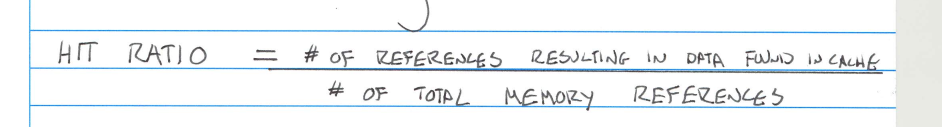 HIT RATIO = # OF REFERENCES RESULTING IN DATA FOUND IN CACHE
# OF TOTAL MEMORY REFERENCES